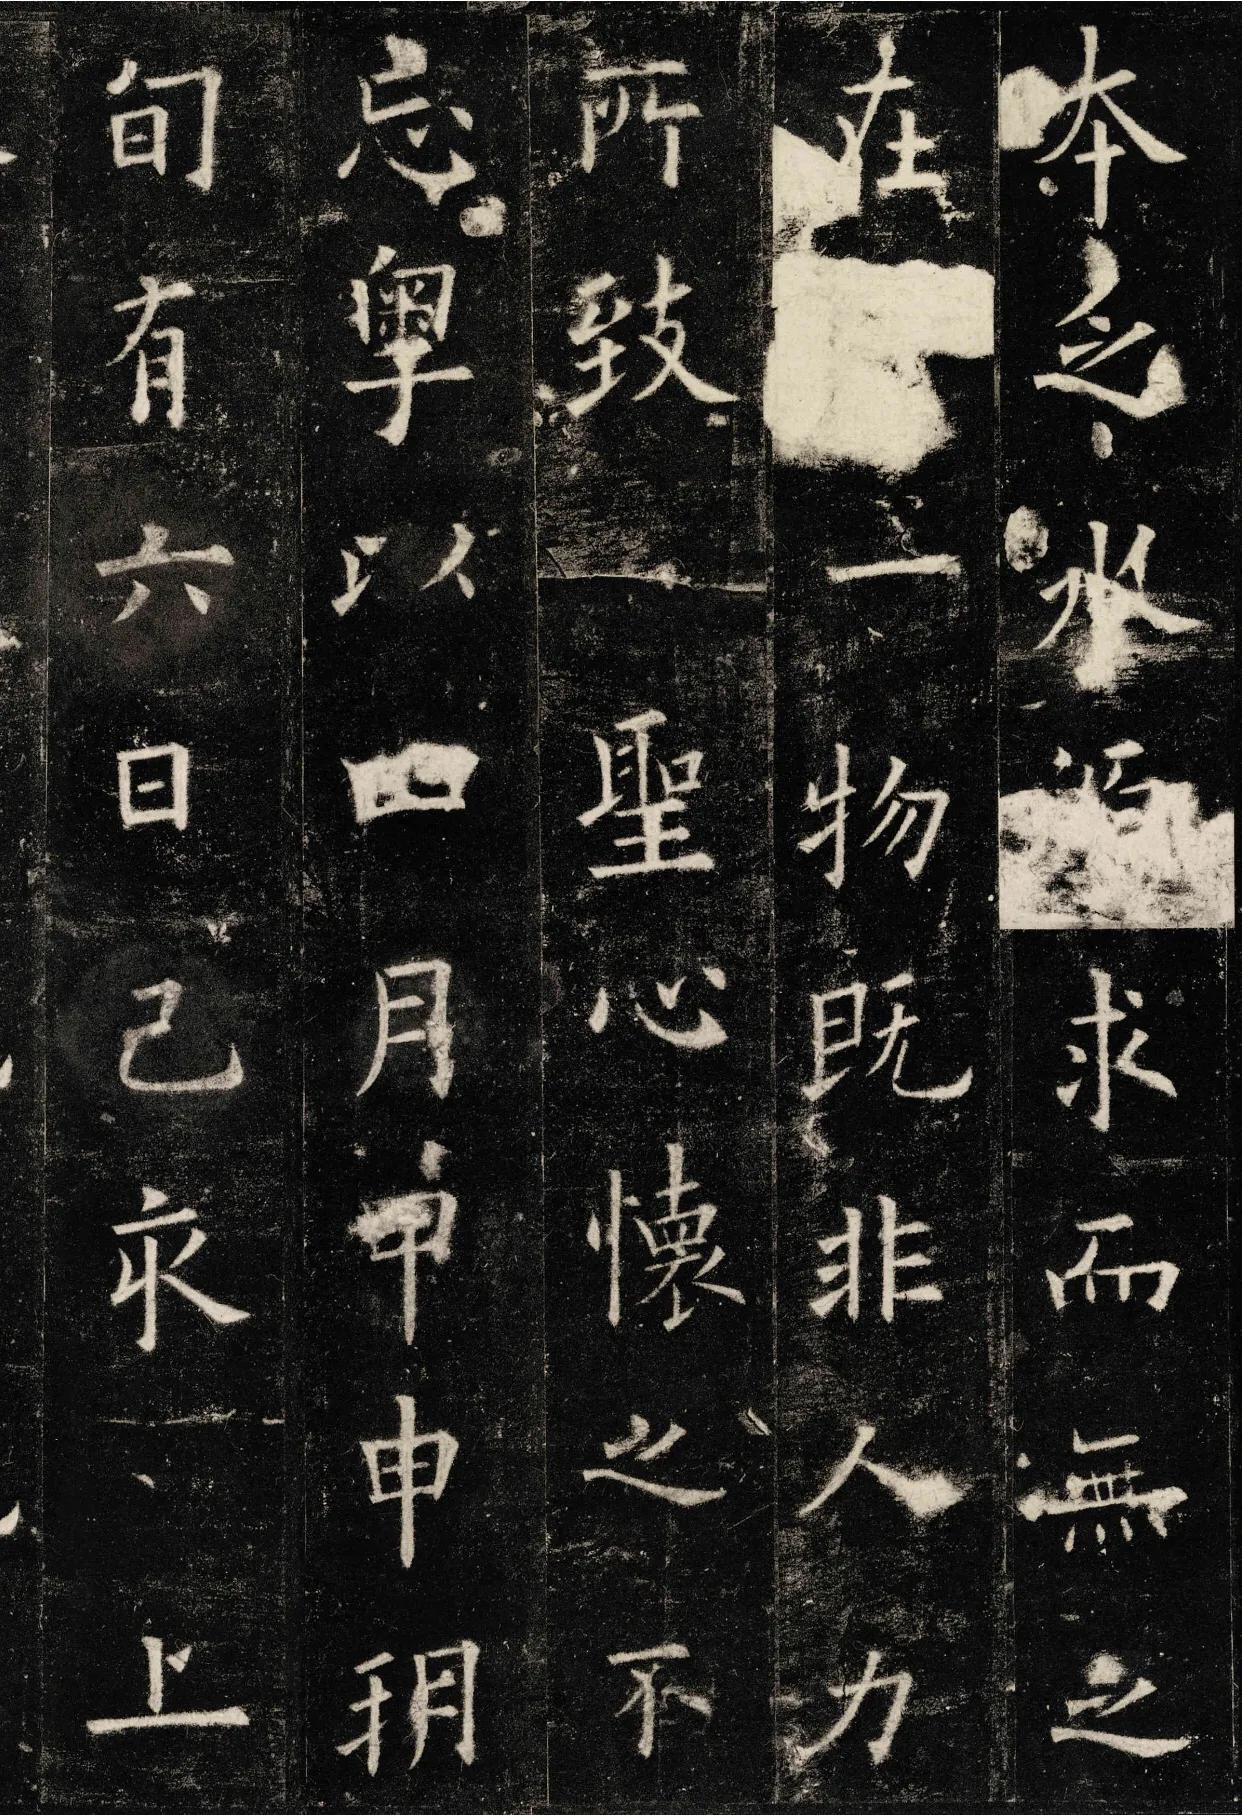 本之水源求而無之
在一物既非人力
所致聖心懷之不
忘粵以四月甲申朔
旬有六日己亥上